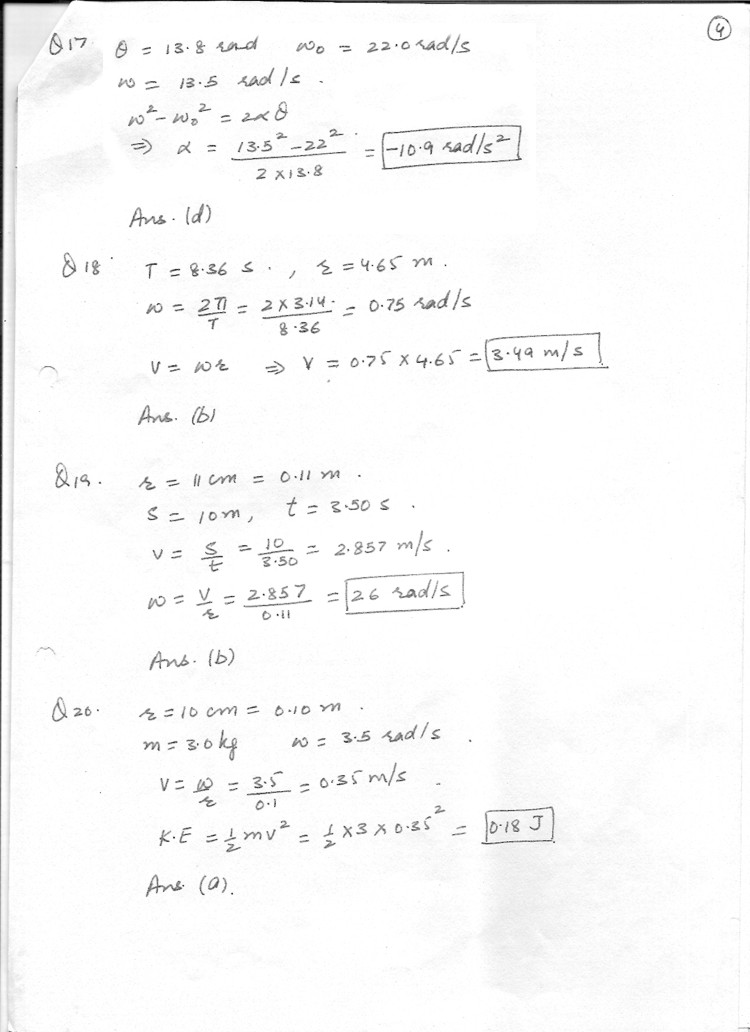 4
Q17 θ = 13.8 rad ω₀ = 22.0 rad/s
ω = 13.5 rad/s .
ω² - ω₀² = 2αθ
⇒ α = (13.5² - 22²) / (2 × 13.8) = -10.9 rad/s²
Ans. (d)
Q18 T = 8.36 s . , r = 4.65 m .
ω = 2π/T = (2 × 3.14)/8.36 = 0.75 rad/s
V = ωr ⇒ V = 0.75 × 4.65 = 3.49 m/s
Ans. (b)
Q19. r = 11 cm = 0.11 m .
S = 10m, t = 3.50 s .
V = S/t = 10/3.50 = 2.857 m/s .
ω = V/r = 2.857/0.11 = 26 rad/s
Ans. (b)
Q20. r = 10 cm = 0.10 m .
m = 3.0 kg ω = 3.5 rad/s .
V = ω/r = 3.5/0.1 = 0.35 m/s .
K.E = ½ mv² = ½ × 3 × 0.35² = 0.18 J
Ans. (a).